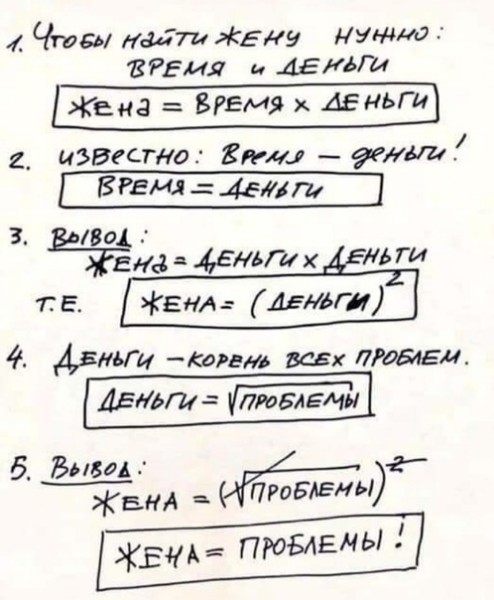 1. Чтобы найти жену нужно:
время и деньги
Жена = время x деньги
2. известно: Время – деньги!
время = деньги
3. Вывод:
жена = деньги x деньги
т.е. жена = (деньги)²
4. Деньги – корень всех проблем.
деньги = √проблемы
5. Вывод:
жена = (√проблемы)²
жена = проблемы!